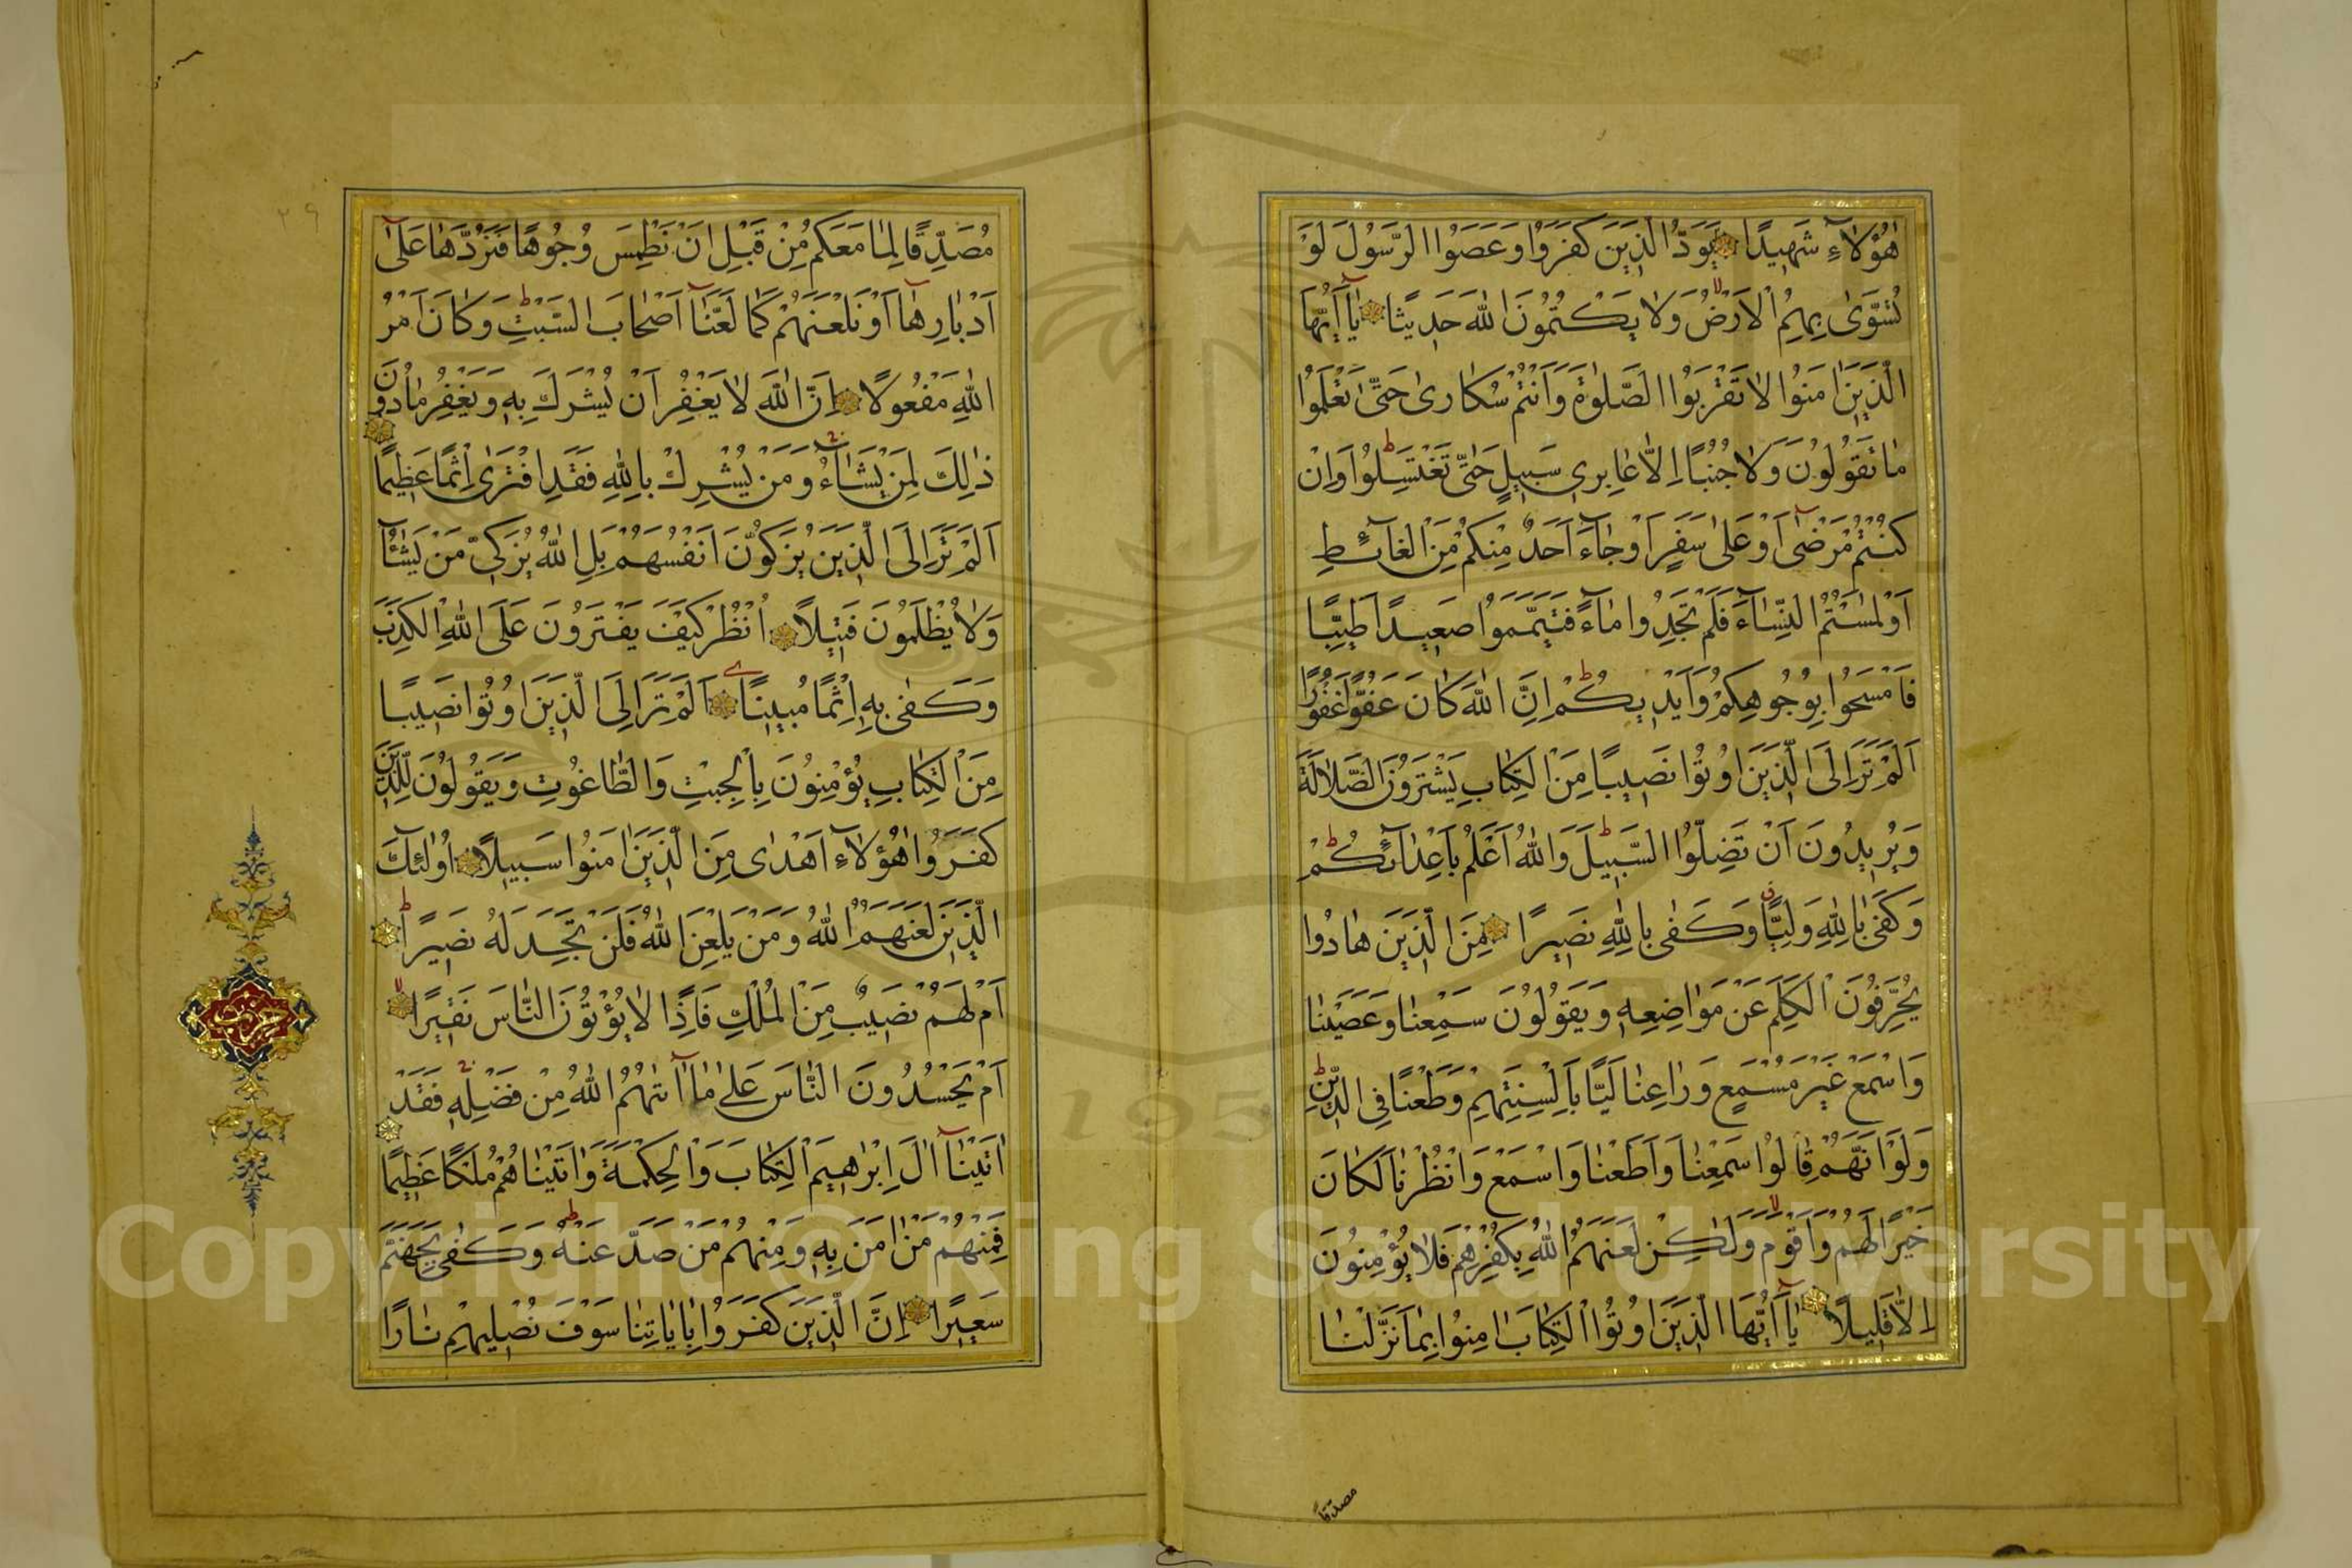 هٰؤُلَاءِ شَهِيدًا يَوْمَئِذٍ يَوَدُّ الَّذِينَ كَفَرُوا وَعَصَوُا الرَّسُولَ لَوْ
تُسَوّٰى بِهِمُ الْاَرْضُ وَلَا يَكْتُمُونَ اللّٰهَ حَدِيثًا يَآ اَيُّهَا
الَّذِينَ اٰمَنُوا لَا تَقْرَبُوا الصَّلٰوةَ وَاَنْتُمْ سُكَارٰى حَتّٰى تَعْلَمُوا
مَا تَقُولُونَ وَلَا جُنُبًا اِلَّا عَابِرِي سَبِيلٍ حَتّٰى تَغْتَسِلُوا وَاِنْ
كُنْتُمْ مَرْضٰى اَوْ عَلٰى سَفَرٍ اَوْ جَآءَ اَحَدٌ مِنْكُمْ مِنَ الْغَآئِطِ
اَوْ لٰمَسْتُمُ النِّسَآءَ فَلَمْ تَجِدُوا مَآءً فَتَيَمَّمُوا صَعِيدًا طَيِّبًا
فَامْسَحُوا بِوُجُوهِكُمْ وَاَيْدِيكُمْ اِنَّ اللّٰهَ كَانَ عَفُوًّا غَفُورًا
اَلَمْ تَرَ اِلَى الَّذِينَ اُوتُوا نَصِيبًا مِنَ الْكِتَابِ يَشْتَرُونَ الضَّلَالَةَ
وَيُرِيدُونَ اَنْ تَضِلُّوا السَّبِيلَ وَاللّٰهُ اَعْلَمُ بِاَعْدَآئِكُمْ
وَكَفٰى بِاللّٰهِ وَلِيًّا وَكَفٰى بِاللّٰهِ نَصِيرًا مِنَ الَّذِينَ هَادُوا
يُحَرِّفُونَ الْكَلِمَ عَنْ مَوَاضِعِهِ وَيَقُولُونَ سَمِعْنَا وَعَصَيْنَا
وَاسْمَعْ غَيْرَ مُسْمَعٍ وَرَاعِنَا لَيًّا بِاَلْسِنَتِهِمْ وَطَعْنًا فِي الدِّينِ
وَلَوْ اَنَّهُمْ قَالُوا سَمِعْنَا وَاَطَعْنَا وَاسْمَعْ وَانْظُرْنَا لَكَانَ
خَيْرًا لَهُمْ وَاَقْوَمَ وَلٰكِنْ لَعَنَهُمُ اللّٰهُ بِكُفْرِهِمْ فَلَا يُؤْمِنُونَ
اِلَّا قَلِيلًا يَآ اَيُّهَا الَّذِينَ اُوتُوا الْكِتَابَ اٰمِنُوا بِمَا نَزَّلْنَا
مصدقا
مُصَدِّقًا لِمَا مَعَكُمْ مِنْ قَبْلِ اَنْ نَطْمِسَ وُجُوهًا فَنَرُدَّهَا عَلٰى
اَدْبَارِهَآ اَوْ نَلْعَنَهُمْ كَمَا لَعَنَّآ اَصْحَابَ السَّبْتِ وَكَانَ اَمْرُ
اللّٰهِ مَفْعُولًا اِنَّ اللّٰهَ لَا يَغْفِرُ اَنْ يُشْرَكَ بِهِ وَيَغْفِرُ مَا دُونَ
ذٰلِكَ لِمَنْ يَشَآءُ وَمَنْ يُشْرِكْ بِاللّٰهِ فَقَدِ افْتَرٰى اِثْمًا عَظِيمًا
اَلَمْ تَرَ اِلَى الَّذِينَ يُزَكُّونَ اَنْفُسَهُمْ بَلِ اللّٰهُ يُزَكِّي مَنْ يَشَآءُ
وَلَا يُظْلَمُونَ فَتِيلًا اُنْظُرْ كَيْفَ يَفْتَرُونَ عَلَى اللّٰهِ الْكَذِبَ
وَكَفٰى بِهِ اِثْمًا مُبِينًا اَلَمْ تَرَ اِلَى الَّذِينَ اُوتُوا نَصِيبًا
مِنَ الْكِتَابِ يُؤْمِنُونَ بِالْجِبْتِ وَالطَّاغُوتِ وَيَقُولُونَ لِلَّذِينَ
كَفَرُوا هٰؤُلَآءِ اَهْدٰى مِنَ الَّذِينَ اٰمَنُوا سَبِيلًا اُولٰئِكَ
الَّذِينَ لَعَنَهُمُ اللّٰهُ وَمَنْ يَلْعَنِ اللّٰهُ فَلَنْ تَجِدَ لَهُ نَصِيرًا
اَمْ لَهُمْ نَصِيبٌ مِنَ الْمُلْكِ فَاِذًا لَا يُؤْتُونَ النَّاسَ نَقِيرًا
اَمْ يَحْسُدُونَ النَّاسَ عَلٰى مَآ اٰتٰهُمُ اللّٰهُ مِنْ فَضْلِهِ فَقَدْ
اٰتَيْنَآ اٰلَ اِبْرٰهِيمَ الْكِتَابَ وَالْحِكْمَةَ وَاٰتَيْنَاهُمْ مُلْكًا عَظِيمًا
فَمِنْهُمْ مَنْ اٰمَنَ بِهِ وَمِنْهُمْ مَنْ صَدَّ عَنْهُ وَكَفٰى بِجَهَنَّمَ
سَعِيرًا اِنَّ الَّذِينَ كَفَرُوا بِاٰيَاتِنَا سَوْفَ نُصْلِيهِمْ نَارًا
٢٩
Copyright © King Saud University
195